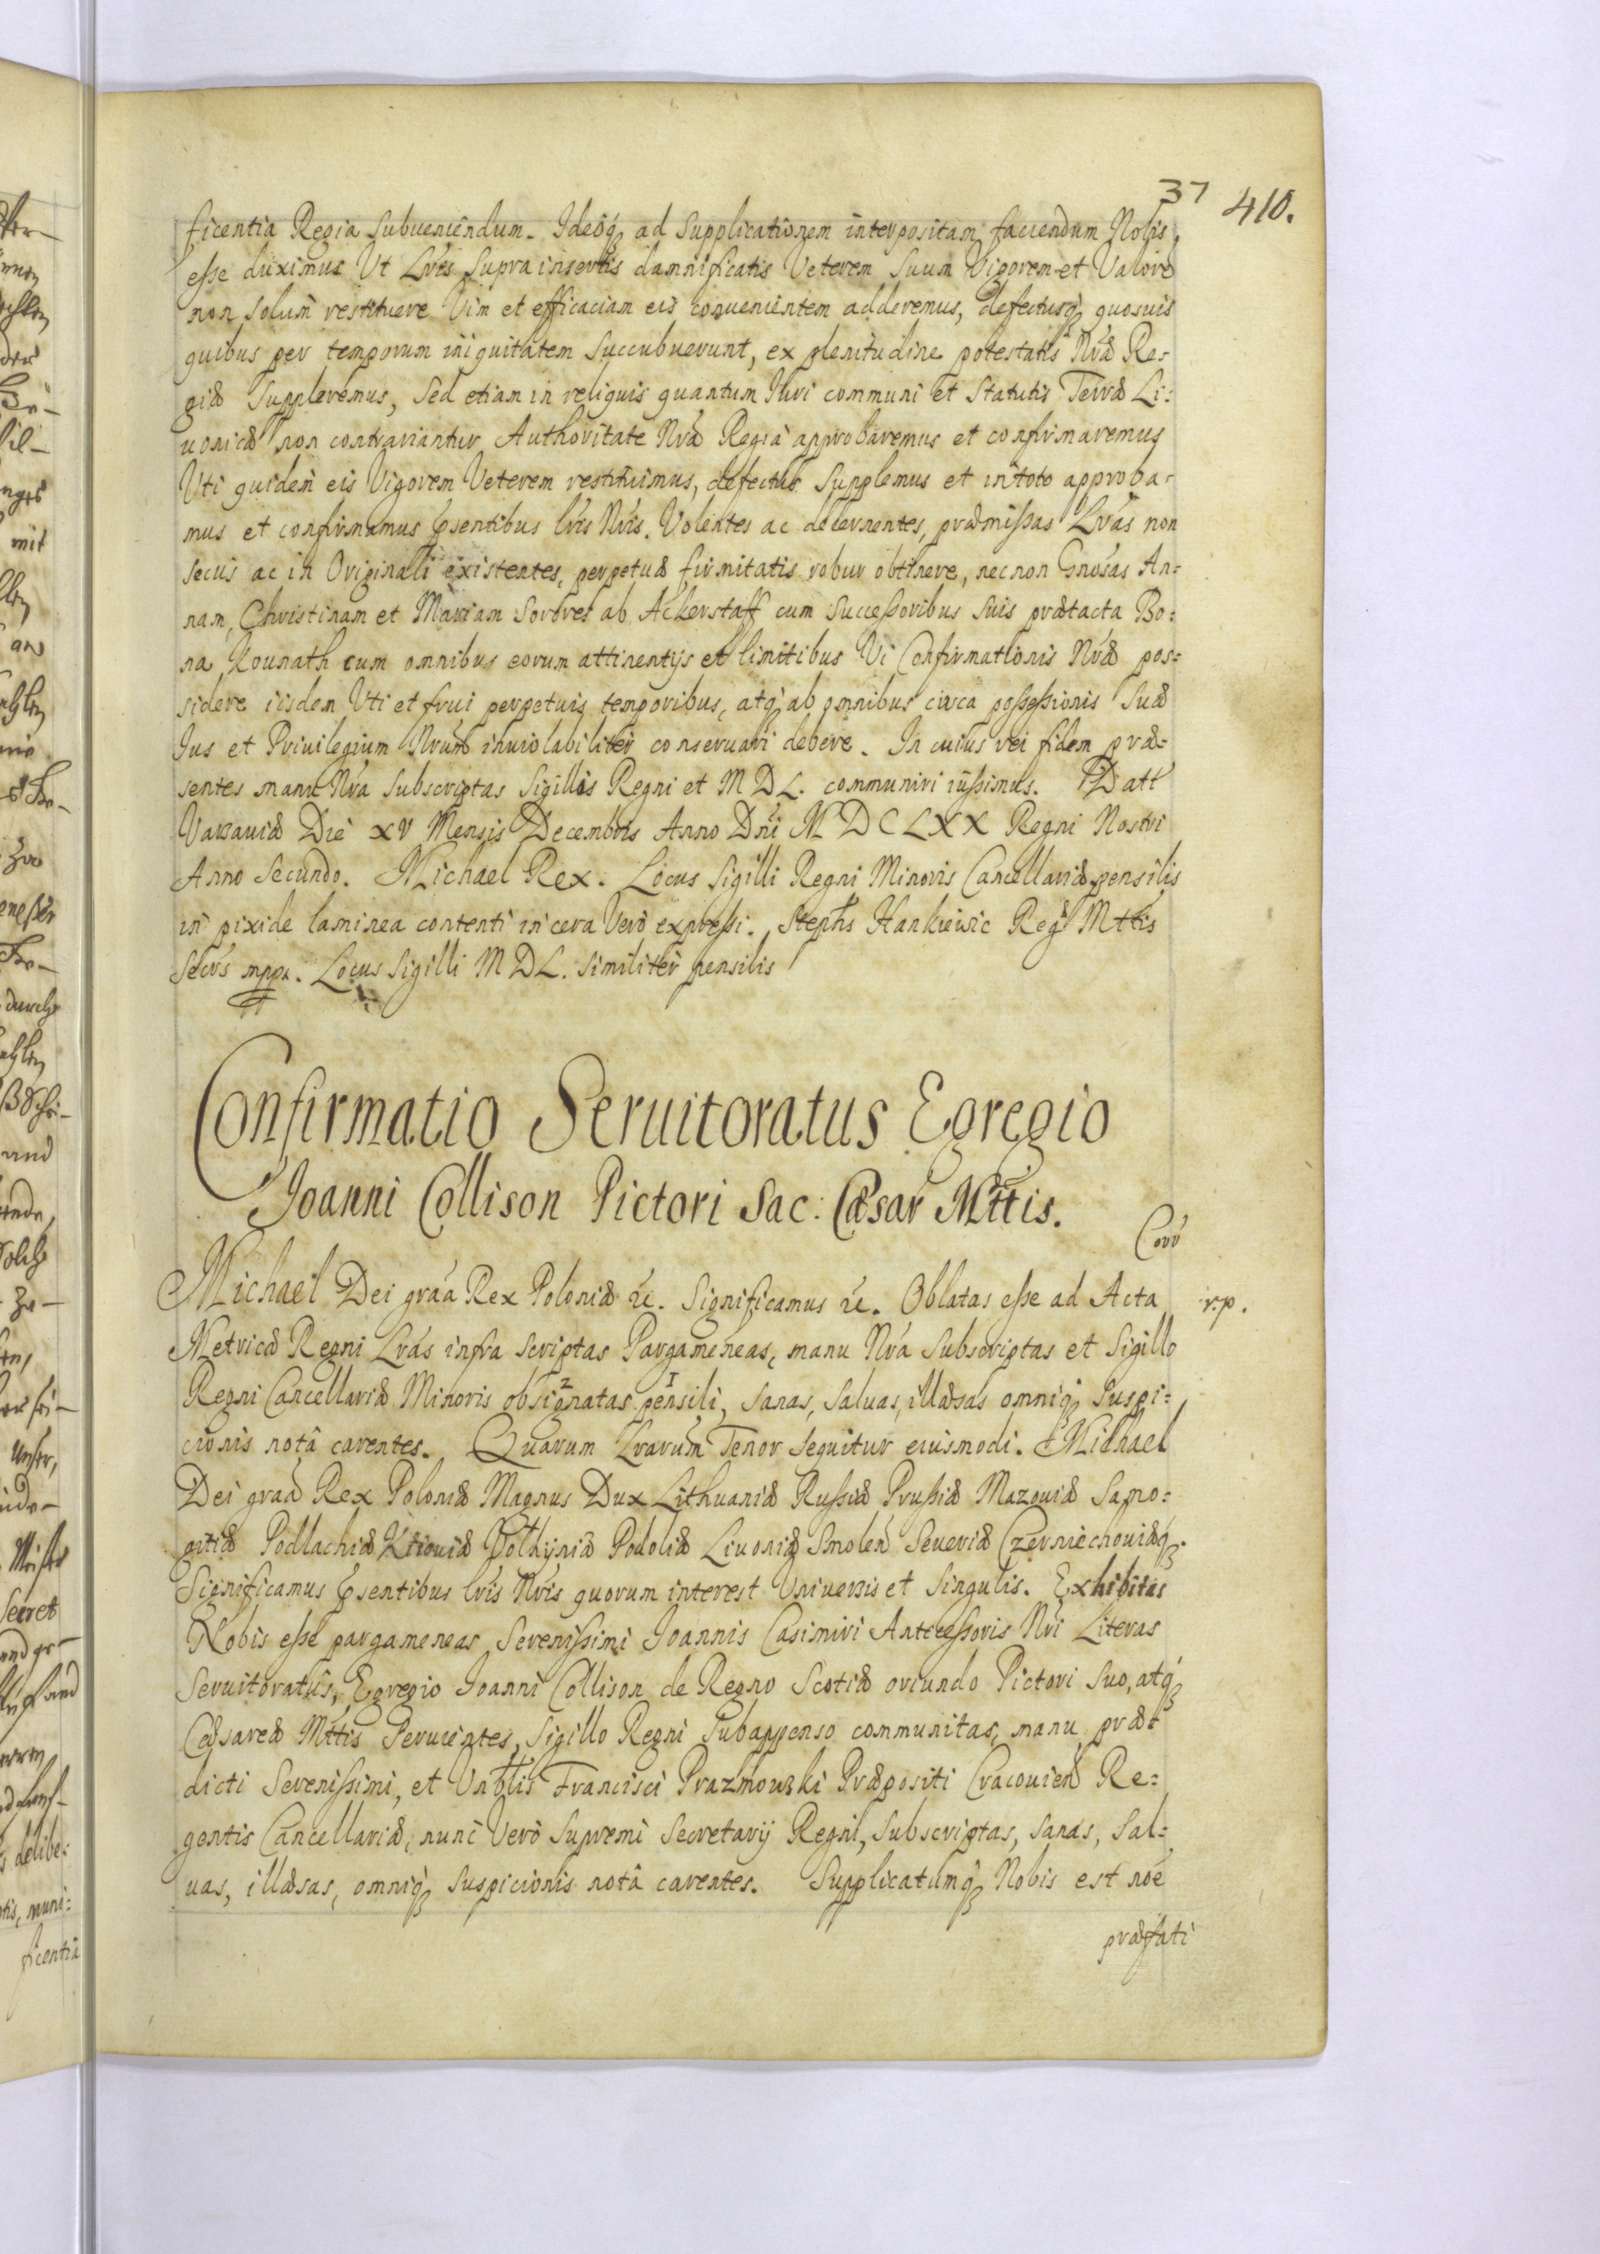 37 410.
ficentia Regia Subueniendum. Ideoq̃ ad Supplicationem interpositam faciendum Nobis
esse duximus Ut Lrĩs Supra insertis damnificatis Veterem Suum Vigorem et Valorẽ
non solum restituere Vim et efficaciam eis conuenientem adderemus, defectusq̃ quosuis
quibus per temporum iniquitatem Succubuerunt, ex plenitudine potestatis Nræ Re-
giæ Suppleremus, Sed etiam in reliquis quantum Iuri communi et Statutis Terræ Li-
uoniæ non contrariantur Authoritate Nrã Regia approbaremus et confirmaremus
Uti quidem eis Vigorem Veterem restituimus, defectus Supplemus et in toto approba-
mus et confirmamus Pŝentibus lrĩs Nrĩs. Volentes ac decernentes, præmissas Lrãs non
secus ac in Originali existentes, perpetuæ firmitatis robur obtinere, nec non Gnosas An-
nam, Christinam et Mariam Sorores ab Ackerstaff cum Successoribus Suis prætacta Bo-
na Kounath cum omnibus eorum attinentijs et limitibus Vi Confirmationis Nræ pos-
sidere iisdem Uti et frui perpetuis temporibus, atq̃ ab omnibus circa possessionis Suæ
Ius et Priuilegium Nrum inuiolabiliter conseruari debere. In cuius rei fidem præ-
sentes manu Nrã Subscriptas Sigillis Regni et M D L. communiri iussimus. Datt
Varsauiæ Die XV Mensis Decembris Anno Dnĩ M D C LXX Regni Nostri
Anno Secundo. Michael Rex. Locus Sigilli Regni Minoris Cancellariæ pensilis
in pixide laminea contenti in cera Vero expressi. Stephs Hankiewic Regæ Mttis
Secrs mppa. Locus Sigilli M D L. Similiter pensilis
Confirmatio Seruitoratus Egregio
Joanni Collison Pictori Sac: Cæsar Mttis.
Corr
Michael Dei grãa Rex Poloniæ &c. Significamus &c. Oblatas esse ad Acta r.p.
Metricæ Regni Lrãs infra scriptas Pargameneas, manu Nrã Subscriptas et Sigillo
Regni Cancellariæ Minoris obsignatas 2 pensili 1, Sanas, Saluas, illæsas omniq̃ Suspi-
cionis notâ carentes. Quarum Lrarum Tenor sequitur eiusmodi. Michael
Dei grãa Rex Poloniæ Magnus Dux Lithuaniæ Russiæ Prussiæ Mazouiæ Samo-
gitiæ Podlachiæ Kiiouiæ Volhyniæ Podoliæ Liuoniæ Smolen Seueriæ Czerniechouiæq̃.
Significamus Pŝentibus lrĩs Nrĩs quorum interest Uniuersis et Singulis. Exhibitas
Nobis esse pargameneas Serenissimi Joannis Casimiri Antecessoris Nrĩ Literas
Seruitoratûs, Egregio Joanni Collison de Regno Scotiæ oriundo Pictori Suo, atq̃
Cæsareæ Mttis Seruientes, Sigillo Regni Subappenso communitas, manu præ-
dicti Serenissimi, et Urblis Francisci Prazmouski Præpositi Cracouien Re-
gentis Cancellariæ, nunc Vero Supremi Secretarij Regni, Subscriptas, Sanas, Sal-
uas, illæsas, omniq̃ Suspicionis notâ carentes. Supplicatumq̃ Nobis est noẽ
præfati